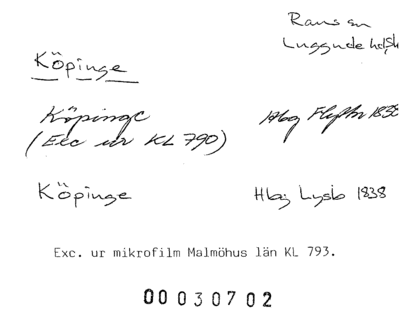 Raus sn
Luggude hd, Sk
Köpinge
Köpinge
(Exc ur KL 790)
Hbg 1830
Köpinge
Hbg Lysb 1838
Exc. ur mikrofilm Malmöhus län KL 793.
00 030702